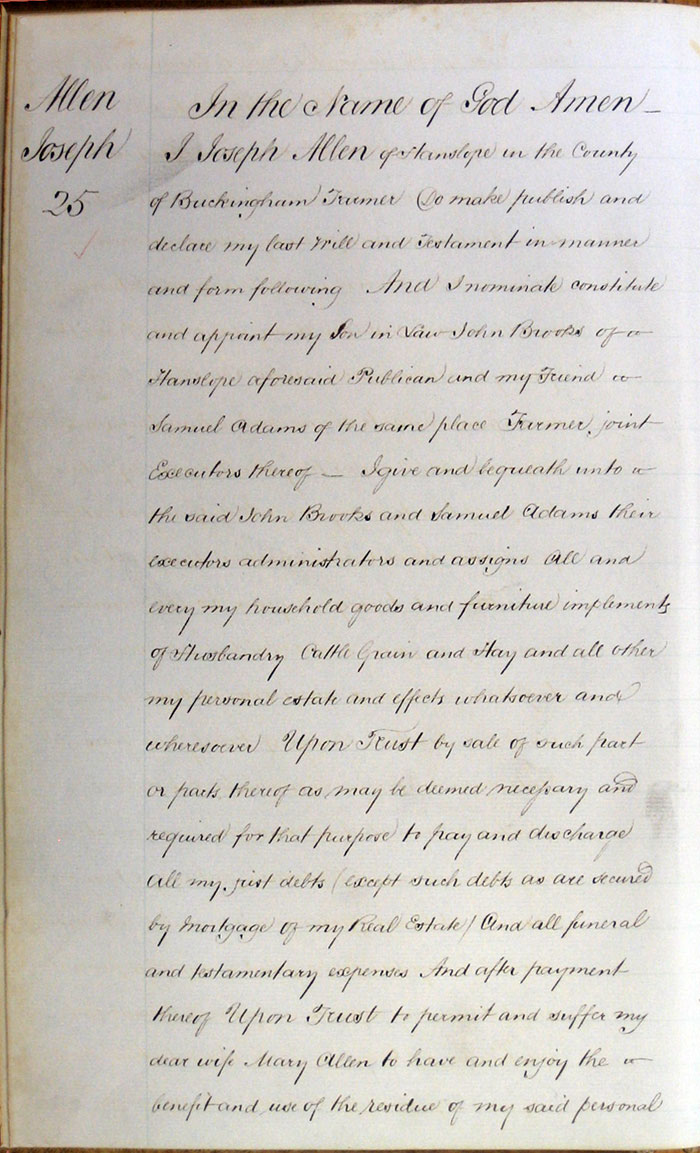 Allen
Joseph
25
In the Name of God Amen –
I Joseph Allen of Hanslope in the County
of Buckingham Farmer Do make publish and
declare my last Will and Testament in manner
and form following And I nominate constitute
and appoint my Son in Law John Brooks of
Hanslope aforesaid Publican and my Friend
Samuel Adams of the same place Farmer joint
Executors thereof – I give and bequeath unto
the said John Brooks and Samuel Adams their
executors administrators and assigns All and
every my household goods and furniture implements
of Husbandry Cattle Grain and Hay and all other
my personal estate and effects whatsoever and
wheresoever Upon Trust by sale of such part
or parts thereof as may be deemed necessary and
required for that purpose to pay and discharge
all my just debts (except such debts as are secured
by Mortgage of my Real Estate) And all funeral
and testamentary expenses And after payment
thereof Upon Trust to permit and suffer my
dear wife Mary Allen to have and enjoy the
benefit and use of the residue of my said personal